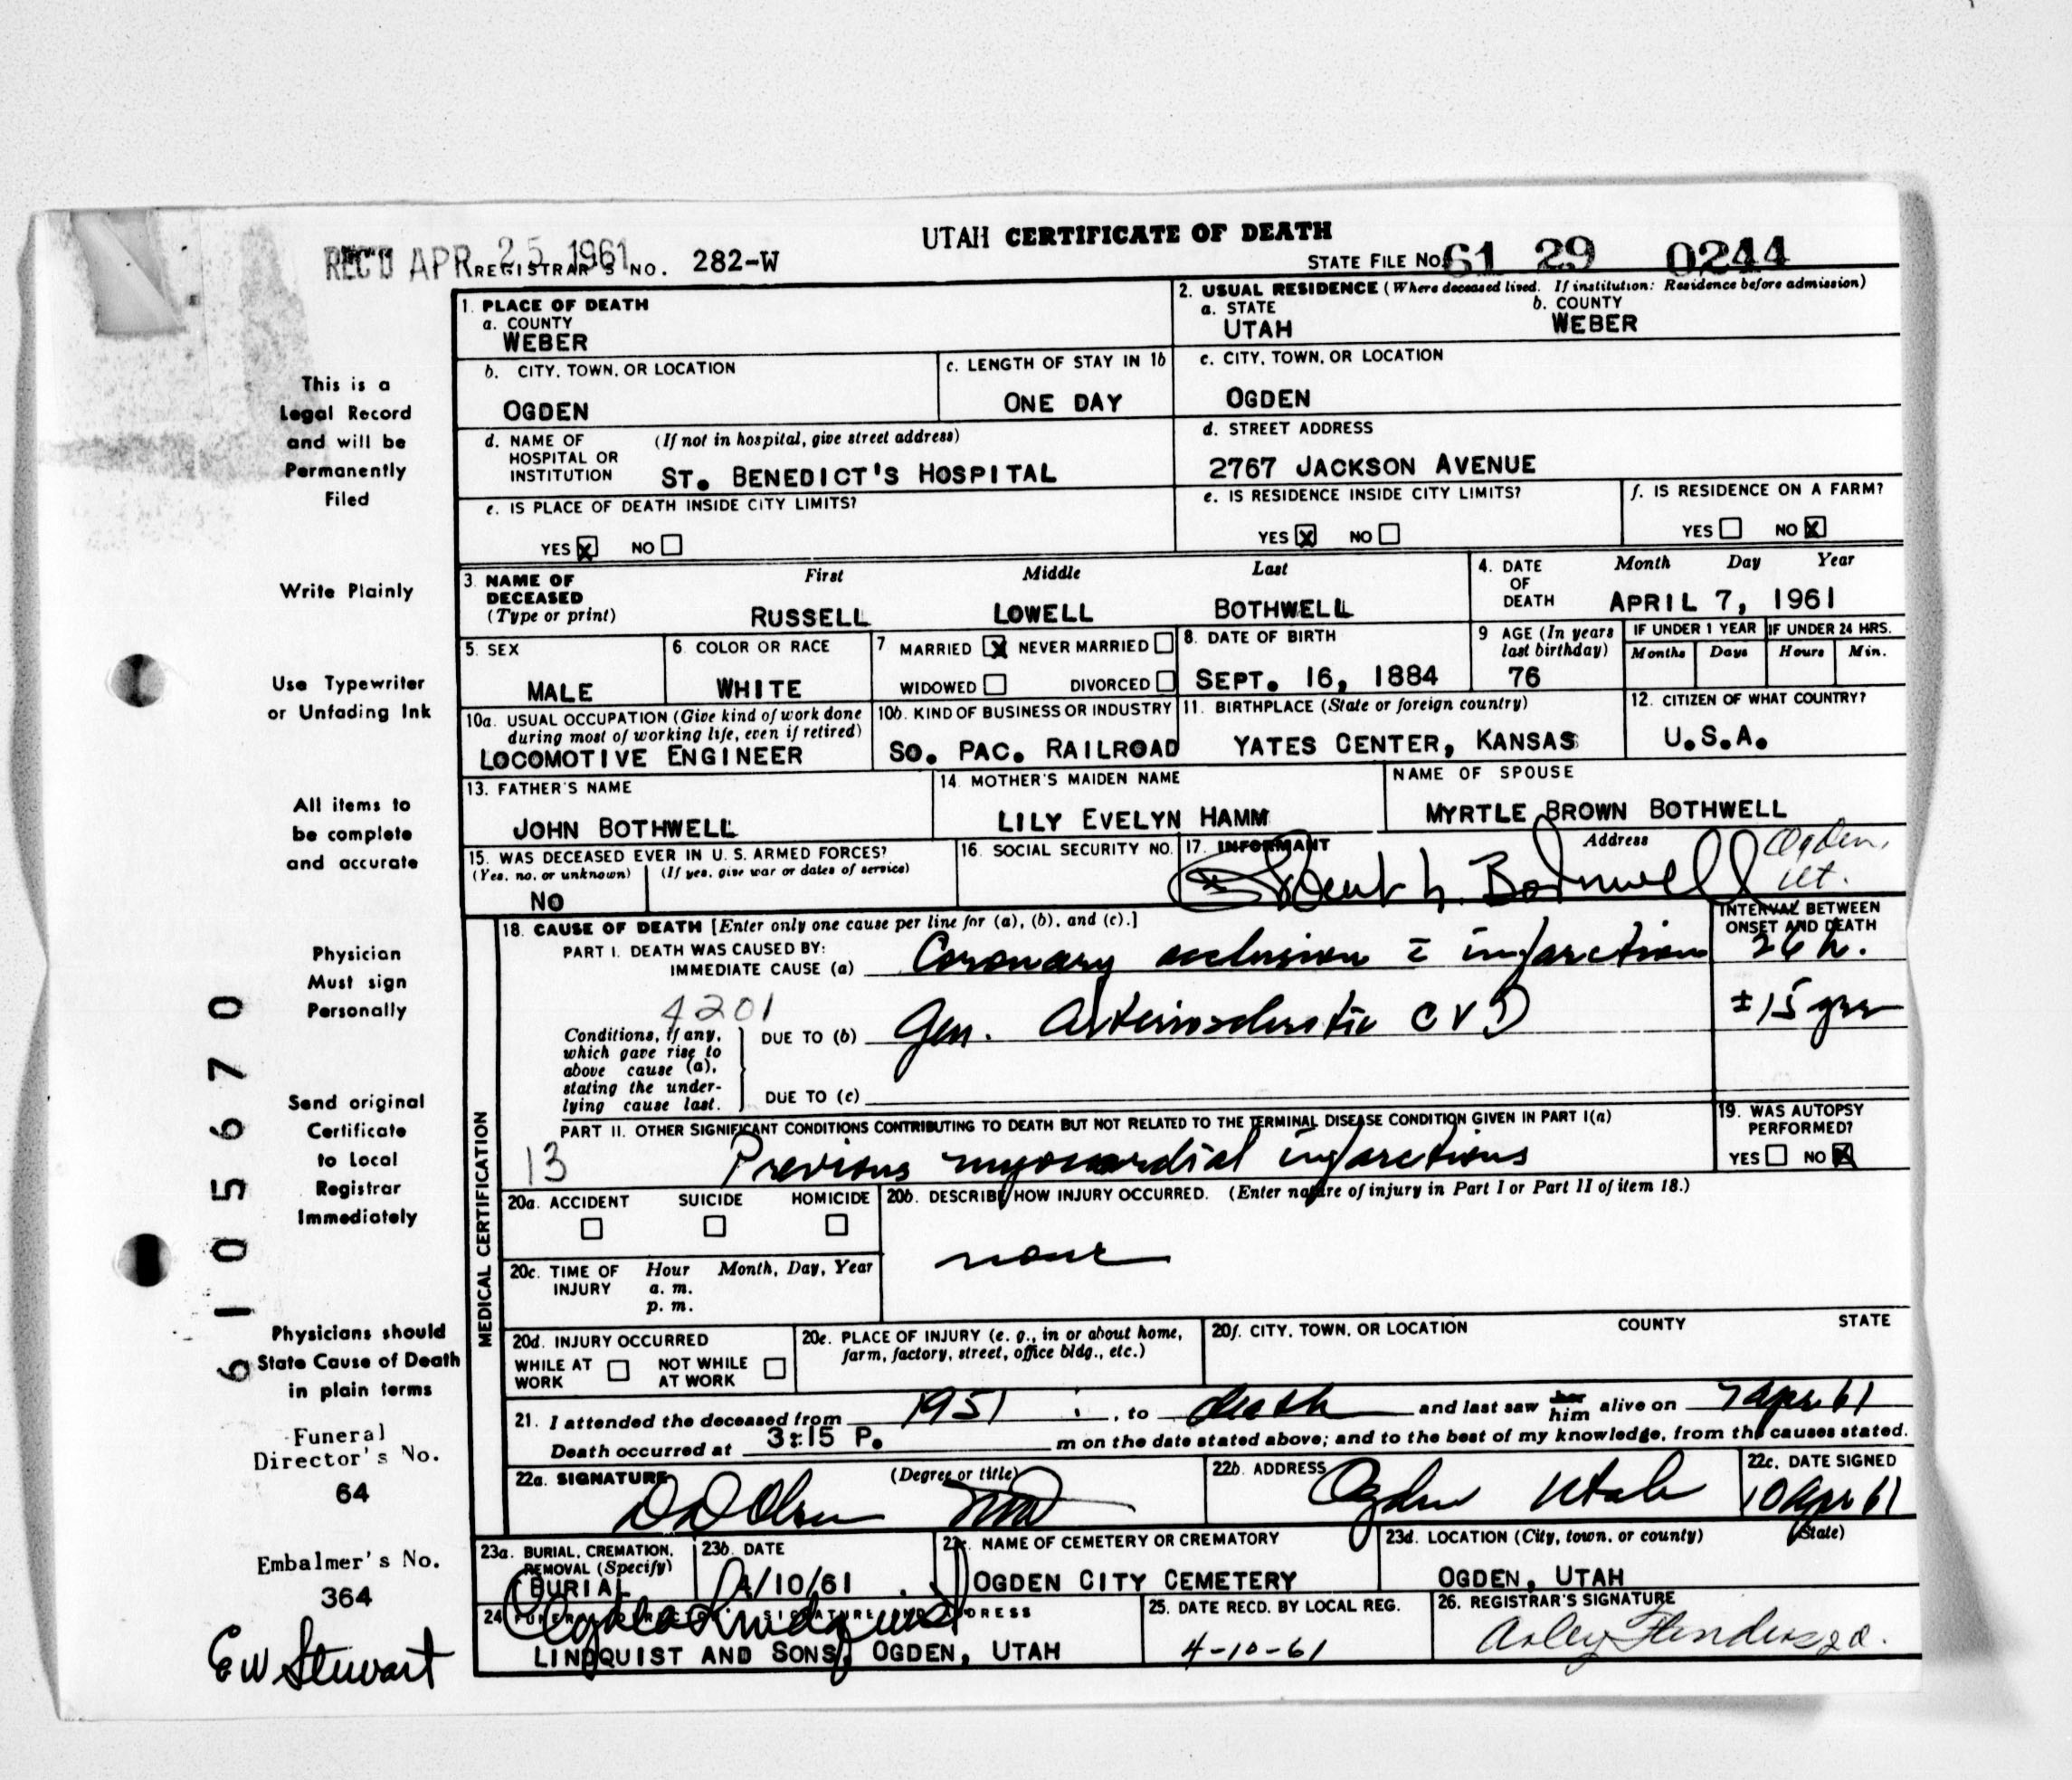 UTAH CERTIFICATE OF DEATH
REC'D APR 25 1961 REGISTRAR'S NO. 282-W
STATE FILE NO. 61 29 0244
This is a Legal Record and will be Permanently Filed
Write Plainly
Use Typewriter or Unfading Ink
All items to be complete and accurate
Physician Must sign Personally
Send original Certificate to Local Registrar Immediately
Physicians should State Cause of Death in plain terms
Funeral Director's No.
64
Embalmer's No.
364
E W Stewart
6 1 0 5 6 7 0
1. PLACE OF DEATH
a. COUNTY
WEBER
2. USUAL RESIDENCE (Where deceased lived. If institution: Residence before admission)
a. STATE
UTAH
b. COUNTY
WEBER
b. CITY, TOWN, OR LOCATION
OGDEN
c. LENGTH OF STAY IN 1b
ONE DAY
c. CITY, TOWN, OR LOCATION
OGDEN
d. NAME OF HOSPITAL OR INSTITUTION (If not in hospital, give street address)
ST. BENEDICT'S HOSPITAL
d. STREET ADDRESS
2767 JACKSON AVENUE
e. IS PLACE OF DEATH INSIDE CITY LIMITS?
YES X NO
e. IS RESIDENCE INSIDE CITY LIMITS?
YES X NO
f. IS RESIDENCE ON A FARM?
YES NO X
3. NAME OF DECEASED (Type or print)
First Middle Last
RUSSELL LOWELL BOTHWELL
4. DATE OF DEATH Month Day Year
APRIL 7, 1961
5. SEX
MALE
6. COLOR OR RACE
WHITE
7 MARRIED X NEVER MARRIED
WIDOWED DIVORCED
8. DATE OF BIRTH
SEPT. 16, 1884
9 AGE (In years last birthday)
76
IF UNDER 1 YEAR IF UNDER 24 HRS.
Months Days Hours Min.
10a. USUAL OCCUPATION (Give kind of work done during most of working life, even if retired)
LOCOMOTIVE ENGINEER
10b. KIND OF BUSINESS OR INDUSTRY
SO. PAC. RAILROAD
11. BIRTHPLACE (State or foreign country)
YATES CENTER, KANSAS
12. CITIZEN OF WHAT COUNTRY?
U.S.A.
13. FATHER'S NAME
JOHN BOTHWELL
14. MOTHER'S MAIDEN NAME
LILY EVELYN HAMM
NAME OF SPOUSE
MYRTLE BROWN BOTHWELL
15. WAS DECEASED EVER IN U. S. ARMED FORCES?
(Yes, no, or unknown) (If yes, give war or dates of service)
NO
16. SOCIAL SECURITY NO.
17. INFORMANT Address
Bothwell Ogden, Ut.
MEDICAL CERTIFICATION
18. CAUSE OF DEATH [Enter only one cause per line for (a), (b), and (c).]
INTERVAL BETWEEN ONSET AND DEATH
PART I. DEATH WAS CAUSED BY:
IMMEDIATE CAUSE (a) Coronary occlusion c̄ infarction 26 h.
4201
Conditions, if any, which gave rise to above cause (a), stating the underlying cause last.
DUE TO (b) Gen. Arteriosclerotic CVD ±15 yrs
DUE TO (c)
PART II. OTHER SIGNIFICANT CONDITIONS CONTRIBUTING TO DEATH BUT NOT RELATED TO THE TERMINAL DISEASE CONDITION GIVEN IN PART I(a)
13 Previous myocardial infarctions
19. WAS AUTOPSY PERFORMED?
YES NO X
20a. ACCIDENT SUICIDE HOMICIDE
20b. DESCRIBE HOW INJURY OCCURRED. (Enter nature of injury in Part I or Part II of item 18.)
none
20c. TIME OF INJURY Hour a. m. p. m. Month, Day, Year
20d. INJURY OCCURRED
WHILE AT WORK NOT WHILE AT WORK
20e. PLACE OF INJURY (e. g., in or about home, farm, factory, street, office bldg., etc.)
20f. CITY, TOWN, OR LOCATION COUNTY STATE
21. I attended the deceased from 1951, to death and last saw her him alive on 7 Apr 61
Death occurred at 3:15 P. m on the date stated above; and to the best of my knowledge, from the causes stated.
22a. SIGNATURE (Degree or title)
D D Olsen MD
22b. ADDRESS
Ogden Utah
22c. DATE SIGNED
10 Apr 61
23a. BURIAL, CREMATION, REMOVAL (Specify)
BURIAL
23b. DATE
4/10/61
23c. NAME OF CEMETERY OR CREMATORY
OGDEN CITY CEMETERY
23d. LOCATION (City, town, or county) (State)
OGDEN, UTAH
24. FUNERAL DIRECTOR'S SIGNATURE AND ADDRESS
LINDQUIST AND SONS, OGDEN, UTAH
25. DATE RECD. BY LOCAL REG.
4-10-61
26. REGISTRAR'S SIGNATURE